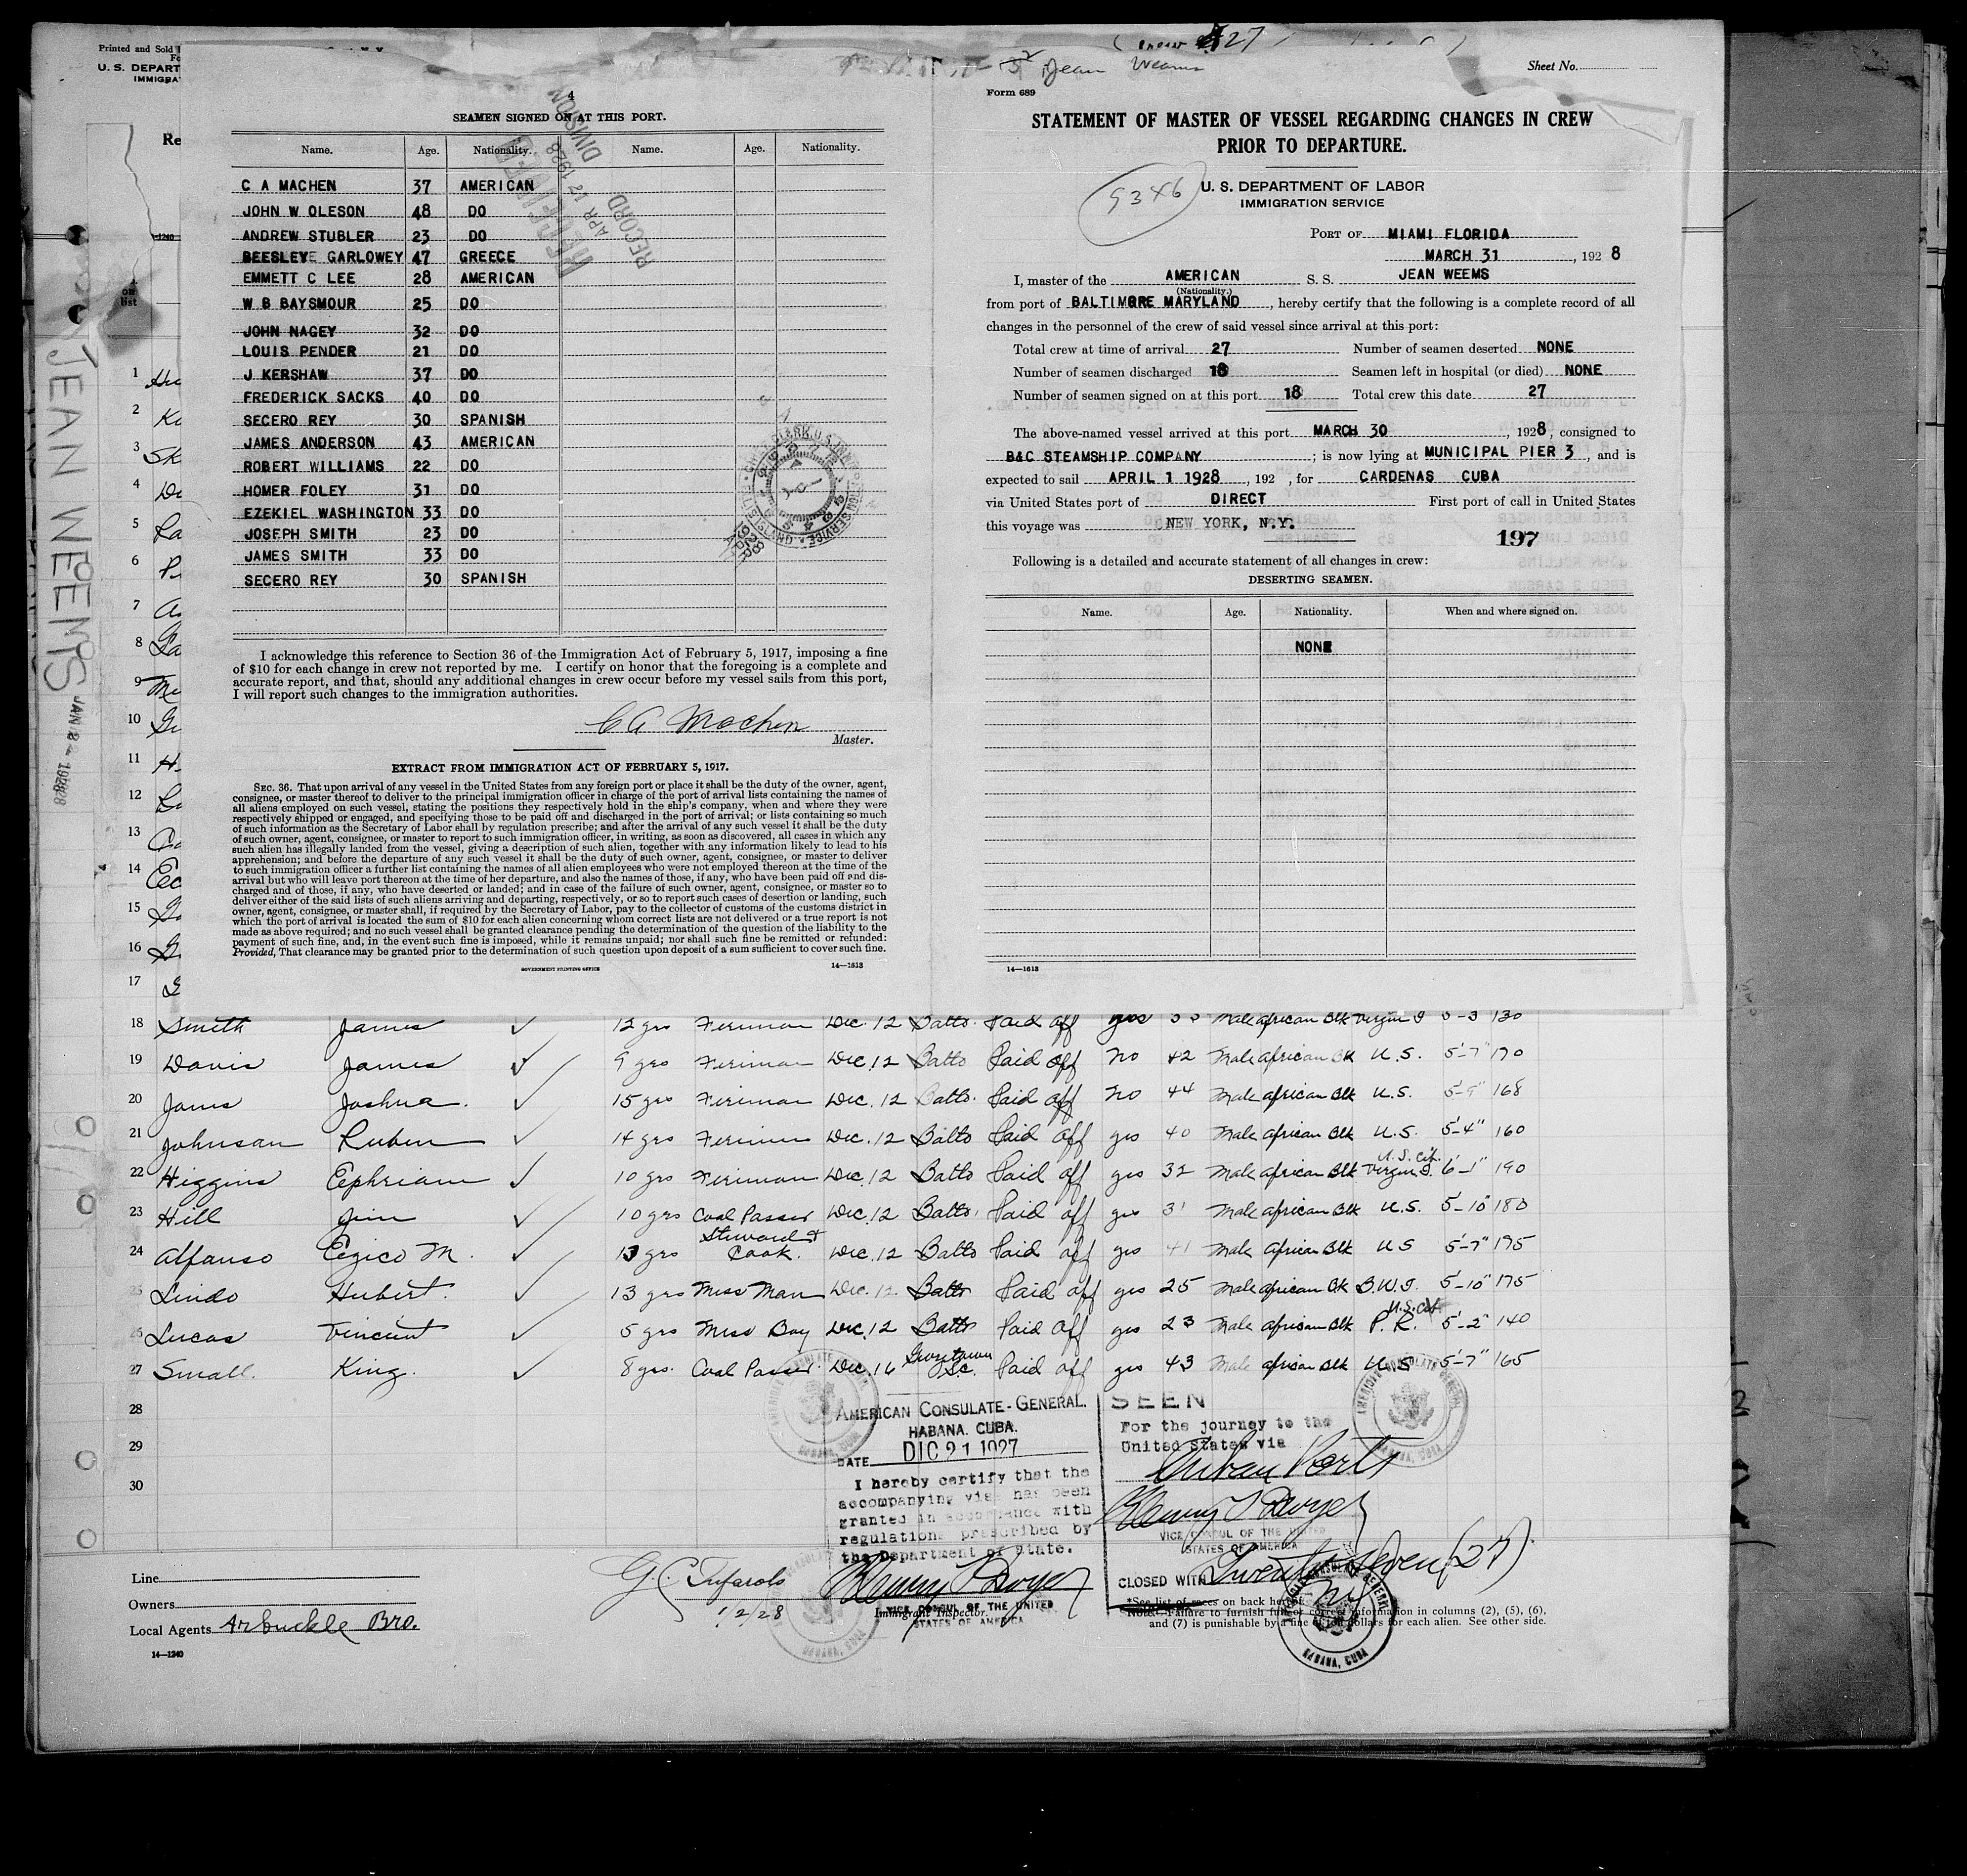 Printed and Sold
U. S. DEPART
IMMIGRA
Re
JEAN WEEMS
JAN 2 - 1928
4
SEAMEN SIGNED ON AT THIS PORT.
Name. Age. Nationality. Name. Age. Nationality.
C A MACHEN 37 AMERICAN
JOHN W OLESON 48 DO
ANDREW STUBLER 23 DO
BEESLEYE GARLOWEY 47 GREECE
EMMETT C LEE 28 AMERICAN
W B BAYSMOUR 25 DO
JOHN NAGEY 32 DO
LOUIS PENDER 21 DO
J KERSHAW 37 DO
FREDERICK SACKS 40 DO
SECERO REY 30 SPANISH
JAMES ANDERSON 43 AMERICAN
ROBERT WILLIAMS 22 DO
HOMER FOLEY 31 DO
EZEKIEL WASHINGTON 33 DO
JOSEPH SMITH 23 DO
JAMES SMITH 33 DO
SECERO REY 30 SPANISH
RECEIVED
APR 12 1928
RECORD DIVISION
I acknowledge this reference to Section 36 of the Immigration Act of February 5, 1917, imposing a fine
of $10 for each change in crew not reported by me. I certify on honor that the foregoing is a complete and
accurate report, and that, should any additional changes in crew occur before my vessel sails from this port,
I will report such changes to the immigration authorities.
C A Machen
Master.
EXTRACT FROM IMMIGRATION ACT OF FEBRUARY 5, 1917.
SEC. 36. That upon arrival of any vessel in the United States from any foreign port or place it shall be the duty of the owner, agent,
consignee, or master thereof to deliver to the principal immigration officer in charge of the port of arrival lists containing the names of
all aliens employed on such vessel, stating the positions they respectively hold in the ship's company, when and where they were
respectively shipped or engaged, and specifying those to be paid off and discharged in the port of arrival; or lists containing so much
of such information as the Secretary of Labor shall by regulation prescribe; and after the arrival of any such vessel it shall be the duty
of such owner, agent, consignee, or master to report to such immigration officer, in writing, as soon as discovered, all cases in which any
such alien has illegally landed from the vessel, giving a description of such alien, together with any information likely to lead to his
apprehension; and before the departure of any such vessel it shall be the duty of such owner, agent, consignee, or master to deliver
to such immigration officer a further list containing the names of all alien employees who were not employed thereon at the time of the
arrival but who will leave port thereon at the time of her departure, and also the names of those, if any, who have been paid off and dis-
charged and of those, if any, who have deserted or landed; and in case of the failure of such owner, agent, consignee, or master so to
deliver either of the said lists of such aliens arriving and departing, respectively, or so to report such cases of desertion or landing, such
owner, agent, consignee, or master shall, if required by the Secretary of Labor, pay to the collector of customs of the customs district in
which the port of arrival is located the sum of $10 for each alien concerning whom correct lists are not delivered or a true report is not
made as above required; and no such vessel shall be granted clearance pending the determination of the question of the liability to the
payment of such fine, and, in the event such fine is imposed, while it remains unpaid; nor shall such fine be remitted or refunded:
Provided, That clearance may be granted prior to the determination of such question upon deposit of a sum sufficient to cover such fine.
GOVERNMENT PRINTING OFFICE 14—1613
Crew 27
Jean Weems
Sheet No.
Form 689
STATEMENT OF MASTER OF VESSEL REGARDING CHANGES IN CREW
PRIOR TO DEPARTURE.
U. S. DEPARTMENT OF LABOR
IMMIGRATION SERVICE
PORT OF MIAMI FLORIDA
MARCH 31, 1928
I, master of the AMERICAN S. S. JEAN WEEMS
(Nationality.)
from port of BALTIMORE MARYLAND, hereby certify that the following is a complete record of all
changes in the personnel of the crew of said vessel since arrival at this port:
Total crew at time of arrival 27 Number of seamen deserted NONE
Number of seamen discharged 18 Seamen left in hospital (or died) NONE
Number of seamen signed on at this port 18 Total crew this date 27
The above-named vessel arrived at this port MARCH 30, 1928, consigned to
B&C STEAMSHIP COMPANY; is now lying at MUNICIPAL PIER 3, and is
expected to sail APRIL 1 1928, 192 , for CARDENAS CUBA
via United States port of DIRECT First port of call in United States
this voyage was NEW YORK, N.Y.
197
Following is a detailed and accurate statement of all changes in crew:
DESERTING SEAMEN.
Name. Age. Nationality. When and where signed on.
NONE
14—1613
1
2
3
4
5
6
7
8
9
10
11
12
13
14
15
16
17
18 Smith James ✓ 12 yrs Fireman Dec. 12 Balto. Paid off yes 33 Male African Blk Virgin I 5-3 130
19 Davis James ✓ 9 yrs Fireman Dec. 12 Balto Paid off No 42 Male African Blk U.S. 5-7" 170
20 Joshua. ✓ 15 yrs Fireman Dec. 12 Balto. Paid off No 44 Male African Blk U.S. 5-9" 168
21 Johnson Ruben ✓ 14 yrs Fireman Dec. 12 Balto Paid off yes 40 Male African Blk U.S. 5-4" 160
22 Higgins Ephriam ✓ 10 yrs Fireman Dec. 12 Balto Paid off yes 32 Male African Blk Virgin I. U.S. Cit. 6-1" 190
23 Hill Jim ✓ 10 yrs Coal Passer Dec. 12 Balto. Paid off yes 31 Male African Blk U.S. 5-10" 180
24 Alfonso M. ✓ 13 yrs Steward & Cook. Dec. 12 Balto Paid off yes 41 Male African Blk U S 5-7" 195
25 Lindo Hubert. ✓ 13 yrs Mess Man Dec. 12 Balto Paid off yes 25 Male African Blk B.W.I. 5-10" 175
26 Lucas Vincent ✓ 5 yrs Mess Boy Dec. 12 Balto Paid off yes 23 Male African Blk P.R. U.S. Cit 5-2" 140
27 Small. King. ✓ 8 yrs. Coal Passer Dec. 16 Georgetown S.C. Paid off yes 43 Male African Blk U.S 5-7" 165
28
29
30
AMERICAN CONSULATE-GENERAL.
HABANA. CUBA.
DATE DIC 21 1927
I hereby certify that the
accompanying visa has been
granted in accordance with
regulations prescribed by
the Department of State.
VICE CONSUL OF THE UNITED
STATES OF AMERICA
Immigrant Inspector.
1/2/28
SEEN
For the journey to the
United States via
Cuban Ports
VICE CONSUL OF THE UNITED
STATES OF AMERICA
CLOSED WITH Twenty seven (27)
HABANA, CUBA
*See list of races on back hereof.
NOTE.—Failure to furnish full or correct information in columns (2), (5), (6),
and (7) is punishable by a fine of ten dollars for each alien. See other side.
Line
Owners
Local Agents Arbuckle Bro.
14—1240